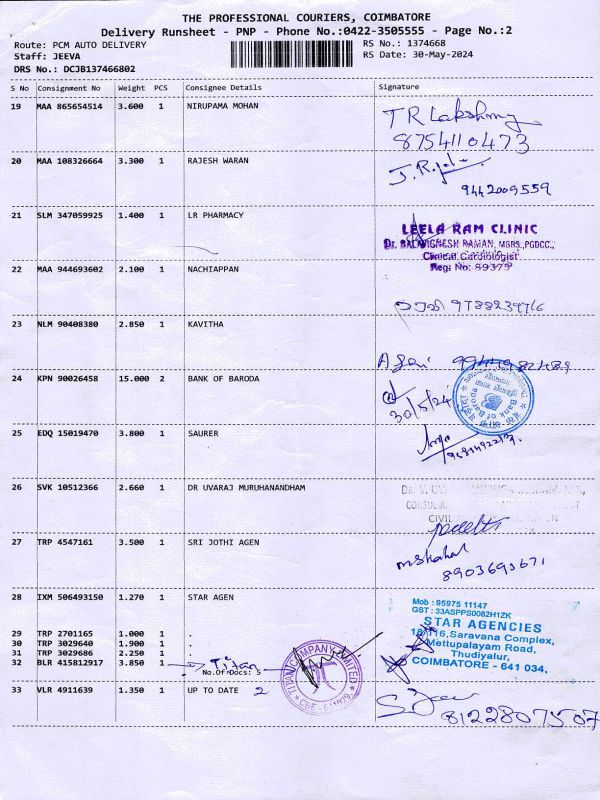 THE PROFESSIONAL COURIERS, COIMBATORE
Delivery Runsheet - PNP - Phone No.:0422-3505555 - Page No.:2
Route: PCM AUTO DELIVERY RS No.: 1374668
Staff: JEEVA RS Date: 30-May-2024
DRS No.: DCJB137466802
S No Consignment No Weight PCS Consignee Details Signature
19 MAA 865654514 3.600 1 NIRUPAMA MOHAN
TR Lakshmy
8754110473
20 MAA 108326664 3.300 1 RAJESH WARAN
9442009559
21 SLM 347059925 1.400 1 LR PHARMACY
LEELA RAM CLINIC
Dr. BALAVIGNESH RAMAN, MBBS.,PGDCC.,
Clinical Cardiologist
Reg: No: 89375
22 MAA 944693602 2.100 1 NACHIAPPAN
9788239716
23 NLM 90408380 2.850 1 KAVITHA
24 KPN 90026458 15.000 2 BANK OF BARODA
30/5/24
Bank of Baroda
25 EDQ 15019470 3.800 1 SAURER
26 SVK 10512366 2.660 1 DR UVARAJ MURUHANANDHAM
27 TRP 4547161 3.500 1 SRI JOTHI AGEN
8903693671
28 IXM 506493150 1.270 1 STAR AGEN
Mob : 95975 11147
GST : 33ASPPS0082H1ZK
STAR AGENCIES
18/116,Saravana Complex,
Mettupalayam Road,
Thudiyalur,
COIMBATORE - 641 034.
29 TRP 2701165 1.000 1 .
30 TRP 3029640 1.900 1 .
31 TRP 3029686 2.250 1 .
32 BLR 415812917 3.850 1 Titan
No.Of Docs: 5
TITAN COMPANY LIMITED
33 VLR 4911639 1.350 1 UP TO DATE 2
8122807507